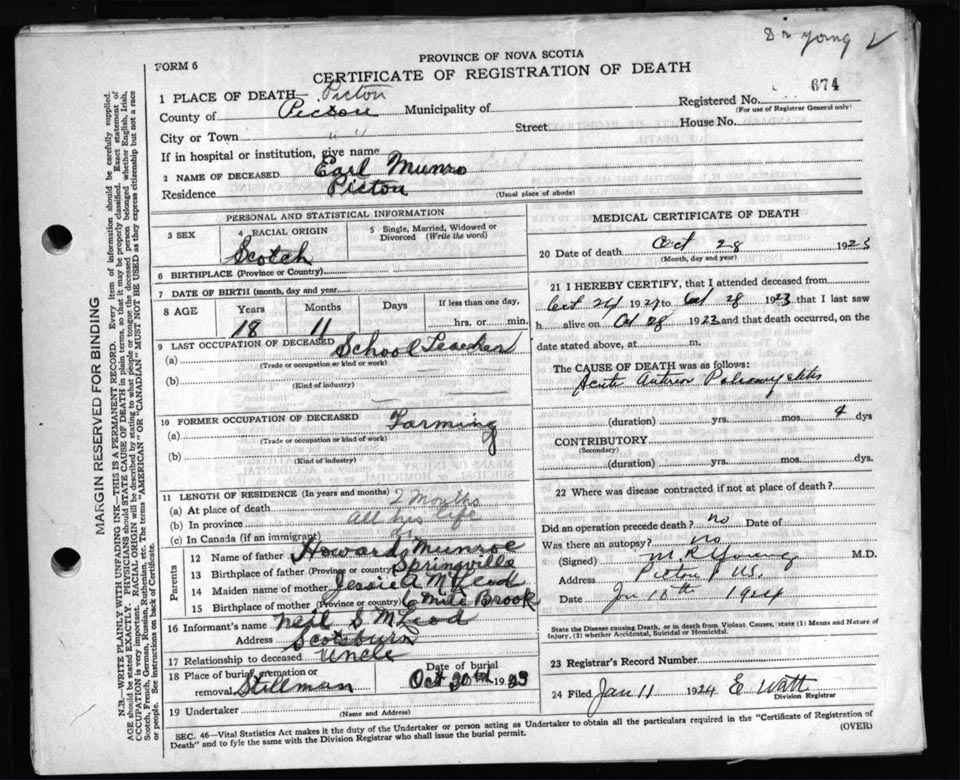 Dr Young
PROVINCE OF NOVA SCOTIA
FORM 6
CERTIFICATE OF REGISTRATION OF DEATH
674
1 PLACE OF DEATH— Picton
County of Picton Municipality of
Registered No.
(For use of Registrar General only)
City or Town " " Street House No.
If in hospital or institution, give name
2 NAME OF DECEASED Earl Munro
Residence Picton (Usual place of abode)
PERSONAL AND STATISTICAL INFORMATION
3 SEX
4 RACIAL ORIGIN
Scotch
5 Single, Married, Widowed or Divorced (Write the word)
6 BIRTHPLACE (Province or Country)
7 DATE OF BIRTH (month, day and year)
8 AGE Years Months Days If less than one day,
18 11 hrs. or min.
9 LAST OCCUPATION OF DECEASED School Teacher
(a) (Trade or occupation or kind of work)
(b) (Kind of industry)
10 FORMER OCCUPATION OF DECEASED Farming
(a) (Trade or occupation or kind of work)
(b) (Kind of industry)
11 LENGTH OF RESIDENCE (In years and months)
(a) At place of death 2 Months
(b) In province All his life
(c) In Canada (if an immigrant)
Parents
12 Name of father Howard Munroe
13 Birthplace of father (Province or country) Springville
14 Maiden name of mother Jessie A McLeod
15 Birthplace of mother (Province or country) 6 Mile Brook
16 Informant's name Neil S McLeod
Address Scotsburn
17 Relationship to deceased Uncle
18 Place of burial, cremation or removal Stillman
Date of burial
Oct 30 1923
19 Undertaker (Name and Address)
MEDICAL CERTIFICATE OF DEATH
20 Date of death Oct 28 1923
(Month, day and year)
21 I HEREBY CERTIFY, that I attended deceased from
Oct 24 1923 to Oct 28 1923 that I last saw
h alive on Oct 28 1923 and that death occurred, on the
date stated above, at m.
The CAUSE OF DEATH was as follows:
Acute Anterior
(duration) yrs. mos. 4 dys
CONTRIBUTORY
(Secondary)
(duration) yrs. mos. dys.
22 Where was disease contracted if not at place of death?
Did an operation precede death? no Date of
Was there an autopsy? no
(Signed) M R Young M.D.
Address Picton N.S.
Date Jan 10th 1924
State the Disease causing Death, or in death from Violent Causes, state (1) Means and Nature of
Injury, (2) whether Accidental, Suicidal or Homicidal.
23 Registrar's Record Number
24 Filed Jan 11 1924 E Watt
Division Registrar
SEC. 46—Vital Statistics Act makes it the duty of the Undertaker or person acting as Undertaker to obtain all the particulars required in the "Certificate of Registration of
Death" and to fyle the same with the Division Registrar who shall issue the burial permit. (OVER)
MARGIN RESERVED FOR BINDING
N.B.—WRITE PLAINLY WITH UNFADING INK—THIS IS A PERMANENT RECORD. Every item of information should be carefully supplied.
AGE should be stated EXACTLY. PHYSICIANS should STATE CAUSE OF DEATH in plain terms, so that it may be properly classified. Exact statement of
OCCUPATION is very important. RACIAL ORIGIN will be described by stating to what people or tongue the deceased person belonged whether English, Irish,
Scotch, French, German, Russian, Ruthenian, etc. The terms "AMERICAN" OR "CANADIAN" MUST NOT BE USED as they express citizenship but not a race
or people. See instructions on back of Certificate.